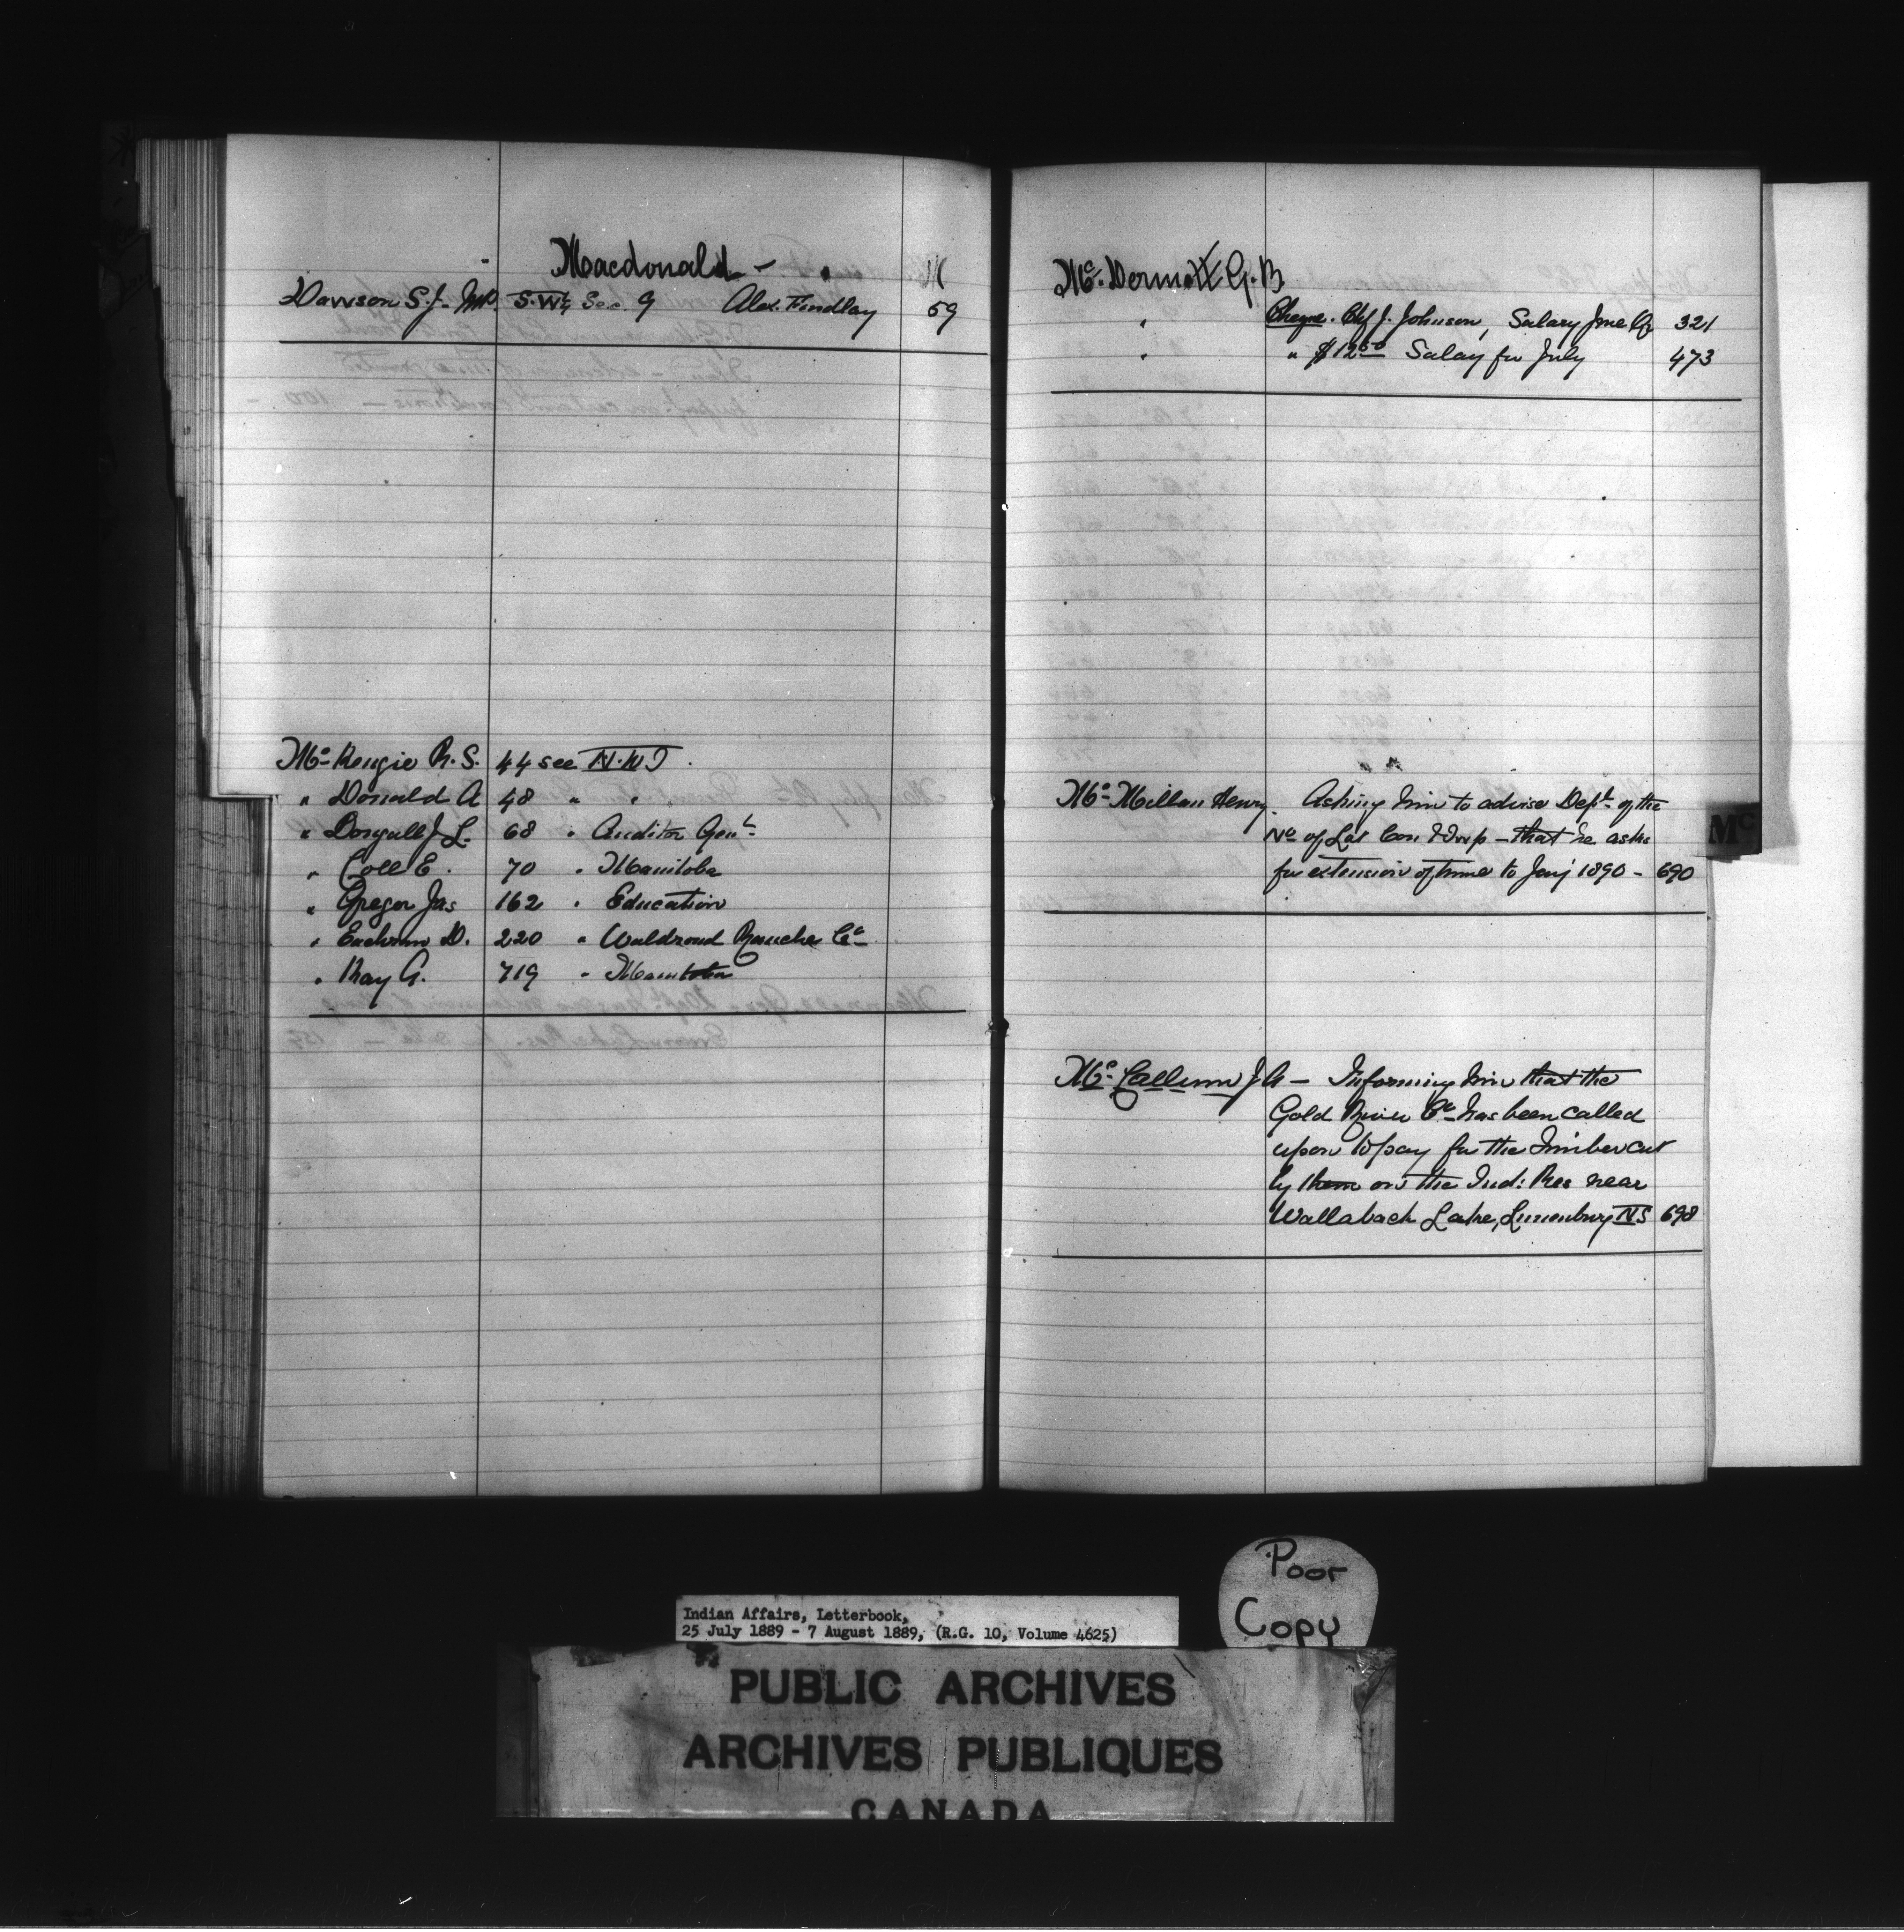 Macdonald -
Dawson S.J. MP. S.W¼ Sec. 9 Alex. Findlay 59
Mc Kenzie R. S. 44 see N.W.T.
" Donald A 48 " "
" Dougall J. L. 68 " Auditor Genl.
" Coll E. 70 " Manitoba
" Gregor Jas 162 " Education
" Eachran D. 220 " Waldrond Ranche Co
" Kay A. 719 " Manitoba
Mc Dermott G. B.
" Cheque. Chf J. Johnson, Salary June Qr 321
" " $12.50 Salary for July 473
Mc Millan Henry. Asking him to advise Dept. of the
No of Lot Con & Twp - that he asks
for extension of time to Jany 1890 - 690
Mc Callum J. A - Informing him that the
Gold River Co has been called
upon to pay for the Timber cut
by them on the Ind: Res near
Wallabach Lake, Lunenburg NS 698
Mc
Poor
Copy
Indian Affairs, Letterbook,
25 July 1889 - 7 August 1889, (R.G. 10, Volume 4625)
PUBLIC ARCHIVES
ARCHIVES PUBLIQUES
CANADA